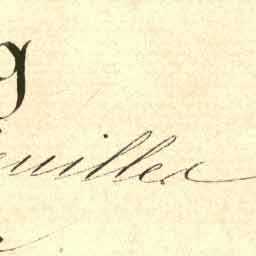 g
euilles